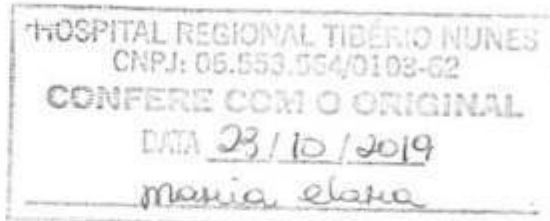 HOSPITAL REGIONAL TIBÉRIO NUNES
CNPJ: 06.553.564/0108-62
CONFERE COM O ORIGINAL
DATA 23/10/2019
maria clara